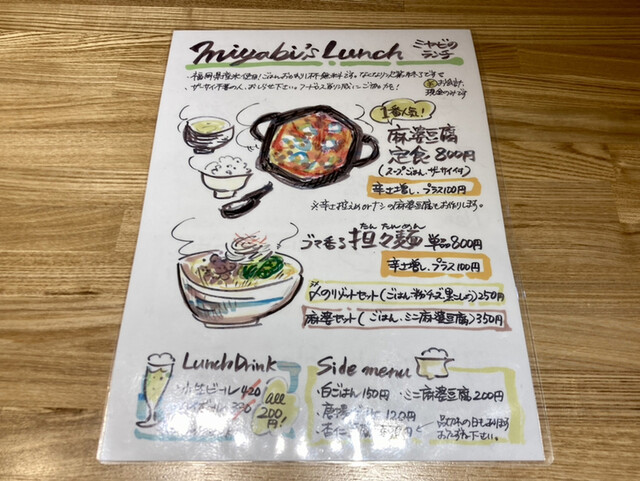 miyabi's Lunch
ミヤビのランチ
福岡県産米使用!ごはんおかわり1杯無料です。なくなり次第終了です
ザーサイ不要の人、おしらせ下さい。フードロス
お会計、
現金のみです
1番人気!
麻婆豆腐
定食 800円
(スープ.ごはん.ザーサイ付)
辛さ増し、プラス100円
※辛さ控えめorナシの麻婆豆腐もお作りします。
たん たん めん
ゴマ香る 担々麺 単品800円
辛さ増し、プラス100円
〆のリゾットセット(ごはん.粉チーズ.黒こしょう)250円
麻婆セット(ごはん.ミニ麻婆豆腐)350円
Lunch Drink
小生ビール 420
all
200
円!
Side menu
・白ごはん 150円 ・ミニ麻婆豆腐 200円
120円
・杏仁
品切れの日もあります
おたずね下さい。